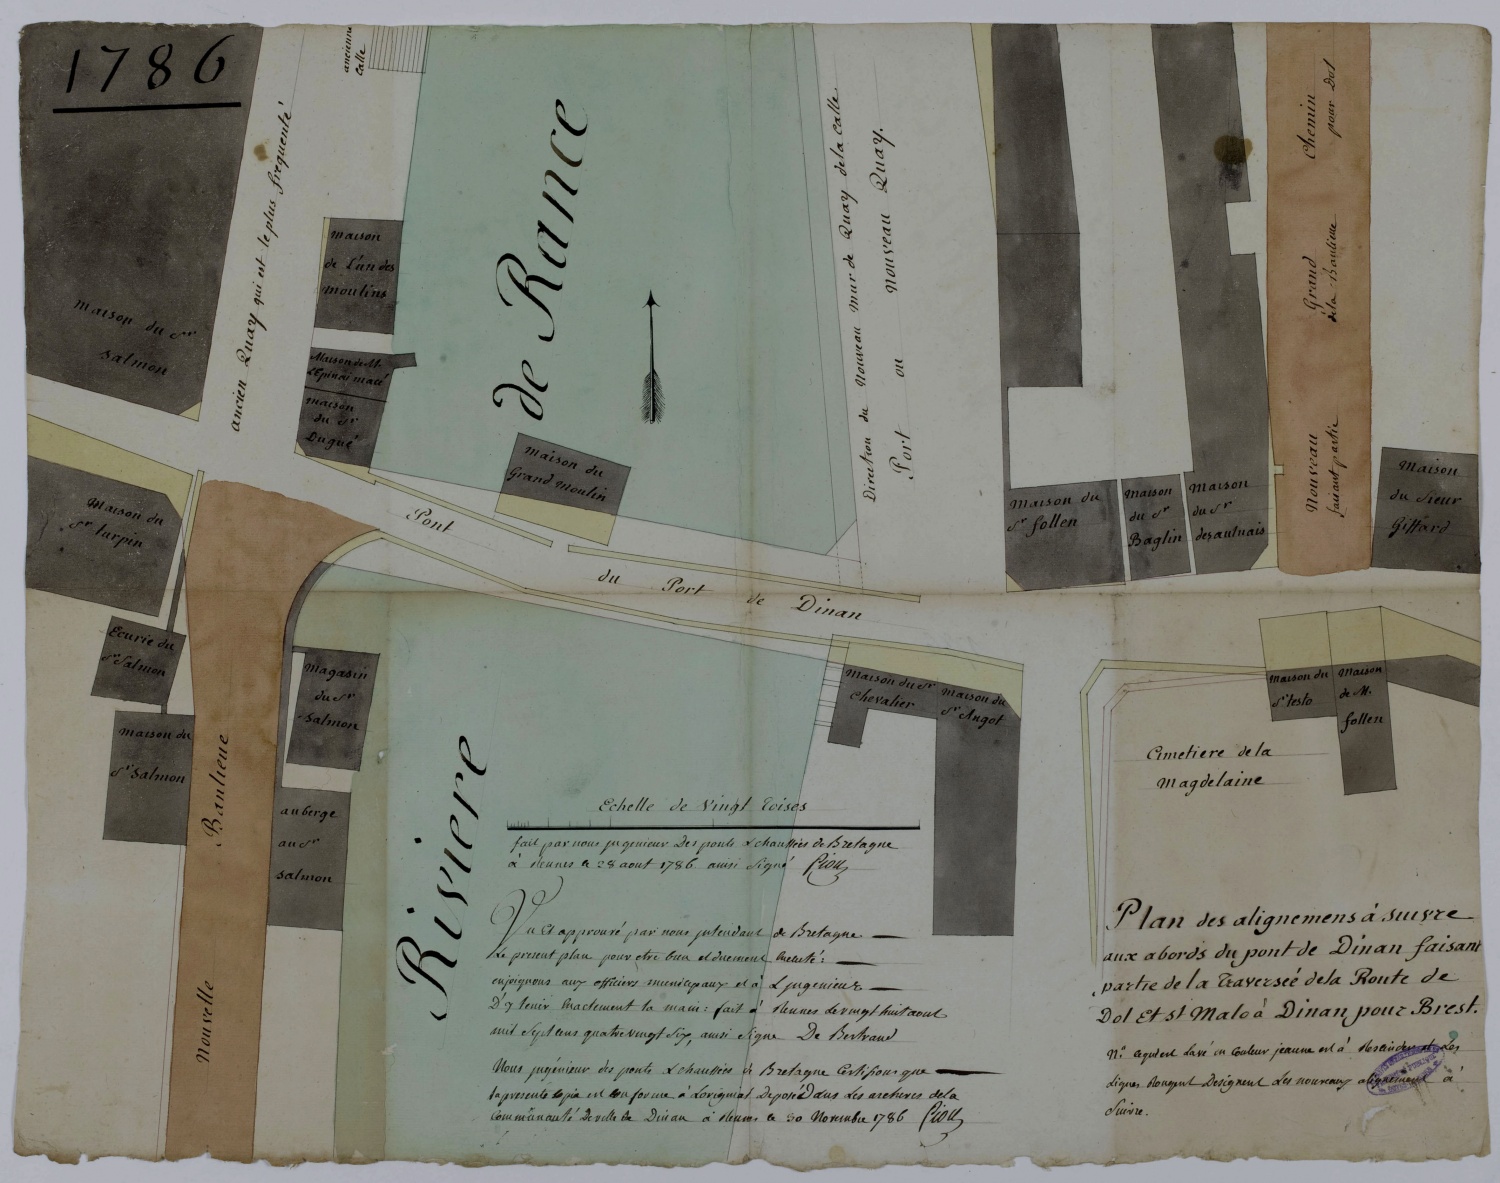 1786
ancienne
Calle
ancien Quay qui est le plus frequenté
maison du Sr
Salmon
maison
de l'un des
moulins
Maison de M.
L'Epinai macé
maison
du Sr
Dugué
de Rance
maison du
Grand Moulin
Direction du Nouveau mur de Quay de la Calle
Port ou nouveau Quay.
Chemin
pour Dol
Grand
de la Banlieue
Nouveau
faisant partie
Maison du
Sr follen
Maison
du Sr
Baglin
Maison
du Sr
desaulnais
Maison
du Sieur
Giffard
Maison du
Sr turpin
Pont
du Port de Dinan
Ecurie du
Sr Salmon
magasin
du Sr
Salmon
maison du
Sr Salmon
auberge
au Sr
Salmon
Nouvelle Banlieue
Riviere
Maison du Sr
Chevalier
Maison du
Sr Angot
maison du
Sr testo
Maison
de M.
follen
Cimetiere de la
Magdelaine
Echelle de Vingt Toises
fait par nous jngenieur Des ponts & chaussées de Bretagne
à Rennes le 28 aout 1786 ainsi Signé Piou
Vu et approuvé par nous jntendant de Bretagne
Le present plan pour etre bien et duement Executé:
enjoignons aux officiers municipaux et à L'jngenieur
D'y tenir Exactement la main: fait à Rennes le vingt huit aout
mil Sept cens quatre vingt Six, ainsi Signe De Bertrand
Nous jngénieur des ponts & chaussées de Bretagne Certifions que
la presente Copie est Conforme à L'original Deposé Dans Les archives de la
Communauté De ville de Dinan à Rennes le 30 Novembre 1786 Piou
Plan des alignemens à suivre
aux abords du pont de Dinan faisant
partie de la Traverseé de la Route de
Dol Et St Malo à Dinan pour Brest.
Na. ce qui est Lavé en Couleur jeaune est à Retrancher et Les
Lignes Rouges Designent Les nouveaux alignement à
Suivre.